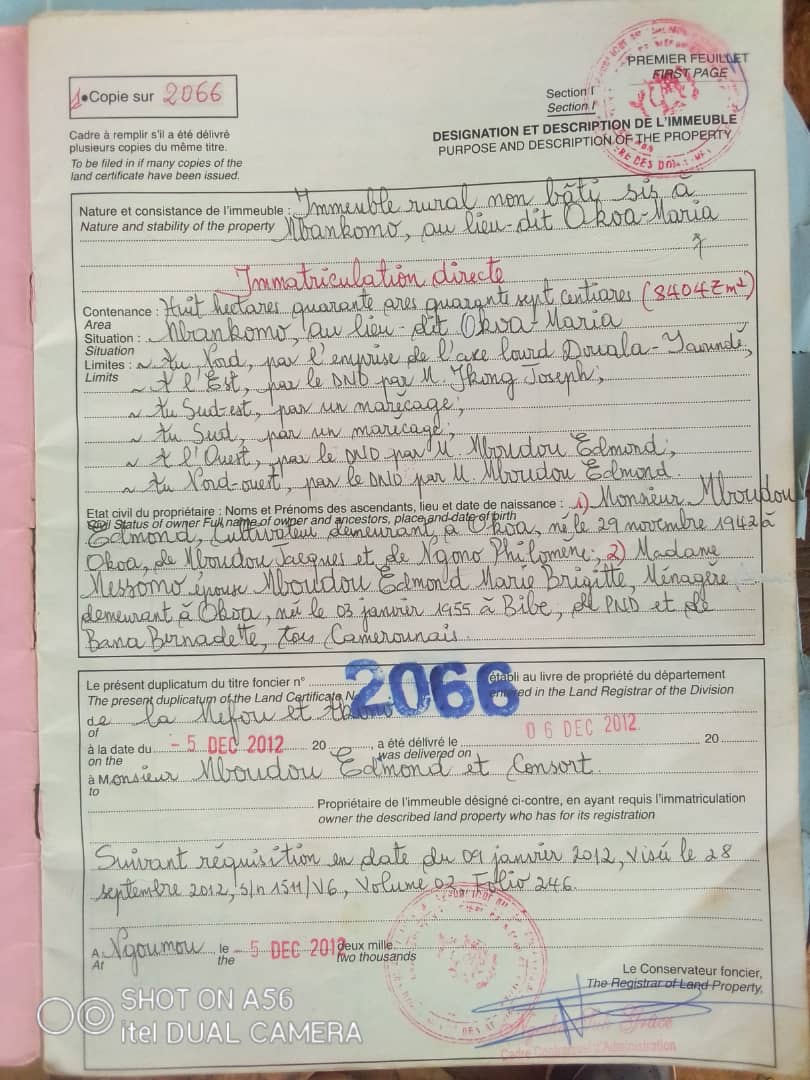 PREMIER FEUILLET
FIRST PAGE
1 Copie sur 2066
Section I
Section I
DESIGNATION ET DESCRIPTION DE L'IMMEUBLE
PURPOSE AND DESCRIPTION OF THE PROPERTY
Cadre à remplir s'il a été délivré
plusieurs copies du même titre.
To be filed in if many copies of the
land certificate have been issued.
Nature et consistance de l'immeuble : Immeuble rural non bâti sis à
Nature and stability of the property Mbankomo, au lieu-dit Okoa-Maria
Immatriculation directe
Contenance : Huit hectares quarante ares quarante sept centiares (84047m²)
Area
Situation : Mbankomo, au lieu-dit Okoa-Maria
Situation
Limites : ~ Au Nord, par l'emprise de l'axe lourd Douala-Yaoundé,
Limits ~ A l'Est, par le DND par M. Ikong Joseph;
~ Au Sud-est, par un marécage;
~ Au Sud, par un marécage;
~ A l'Ouest, par le DND par M. Mboudou Edmond;
~ Au Nord-ouest, par le DND par M. Mboudou Edmond.
Etat civil du propriétaire : Noms et Prénoms des ascendants, lieu et date de naissance : 1) Monsieur Mboudou
Civil Status of owner Full name of owner and ancestors, place and date of birth
Edmond, Cultivateur demeurant à Okoa, né le 29 novembre 1942 à
Okoa, de Mboudou Jacques et de Ngono Philomène; 2) Madame
Messomo épouse Mboudou Edmond Marie Brigitte, Ménagère
demeurant à Okoa, née le 03 janvier 1955 à Bibe, de PND et de
Bana Bernadette, tous Camerounais.
Le présent duplicatum du titre foncier n° 2066 établi au livre de propriété du département
The present duplicatum of the Land Certificate N° entered in the Land Registrar of the Division
de la Mefou et Akono
of
à la date du - 5 DEC 2012 20 , a été délivré le 06 DEC 2012 20
on the was delivered on
à Monsieur Mboudou Edmond et Consort.
to
Propriétaire de l'immeuble désigné ci-contre, en ayant requis l'immatriculation
owner the described land property who has for its registration
Suivant réquisition en date du 09 janvier 2012, Visé le 28
septembre 2012, s/n 1511/V6., Volume 02, Folio 246.
A Ngoumou le - 5 DEC 2012 deux mille
At the two thousands
Le Conservateur foncier,
The Registrar of Land Property,
SHOT ON A56
itel DUAL CAMERA